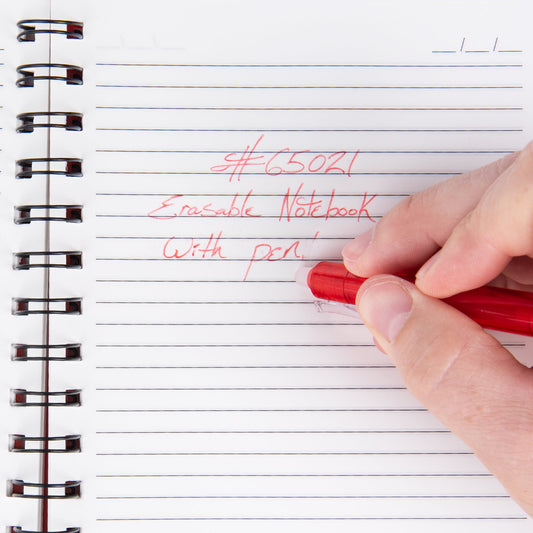 #65021
Erasable Notebook
With pen!
__/__/__